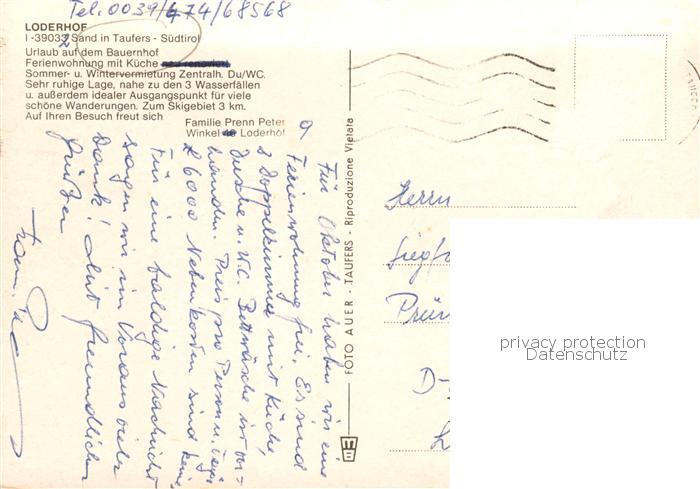 Tel. 0039/474/68568
LODERHOF
I-39033 Sand in Taufers - Südtirol
2
Urlaub auf dem Bauernhof
Ferienwohnung mit Küche neu renoviert
Sommer- u. Wintervermietung Zentralh. Du/WC.
Sehr ruhige Lage, nahe zu den 3 Wasserfällen
u. außerdem idealer Ausgangspunkt für viele
schöne Wanderungen. Zum Skigebiet 3 km.
Auf Ihren Besuch freut sich
Familie Prenn Peter
Winkel Loderhof
Für Oktober haben wir eine
Ferienwohnung frei. Es sind
2 Doppelzimmer mit Küche,
Dusche u. W.C. Bettwäsche ist vor-
handen. Preis pro Person u. Tag
£ 6000 Nebenkosten sind keine
Für eine baldige Nachricht
sagen wir im Voraus vielen
Dank! Mit freundlichen
Grüßen
FOTO AUER - TAUFERS - Riproduzione Vietata
Herrn
privacy protection
Datenschutz